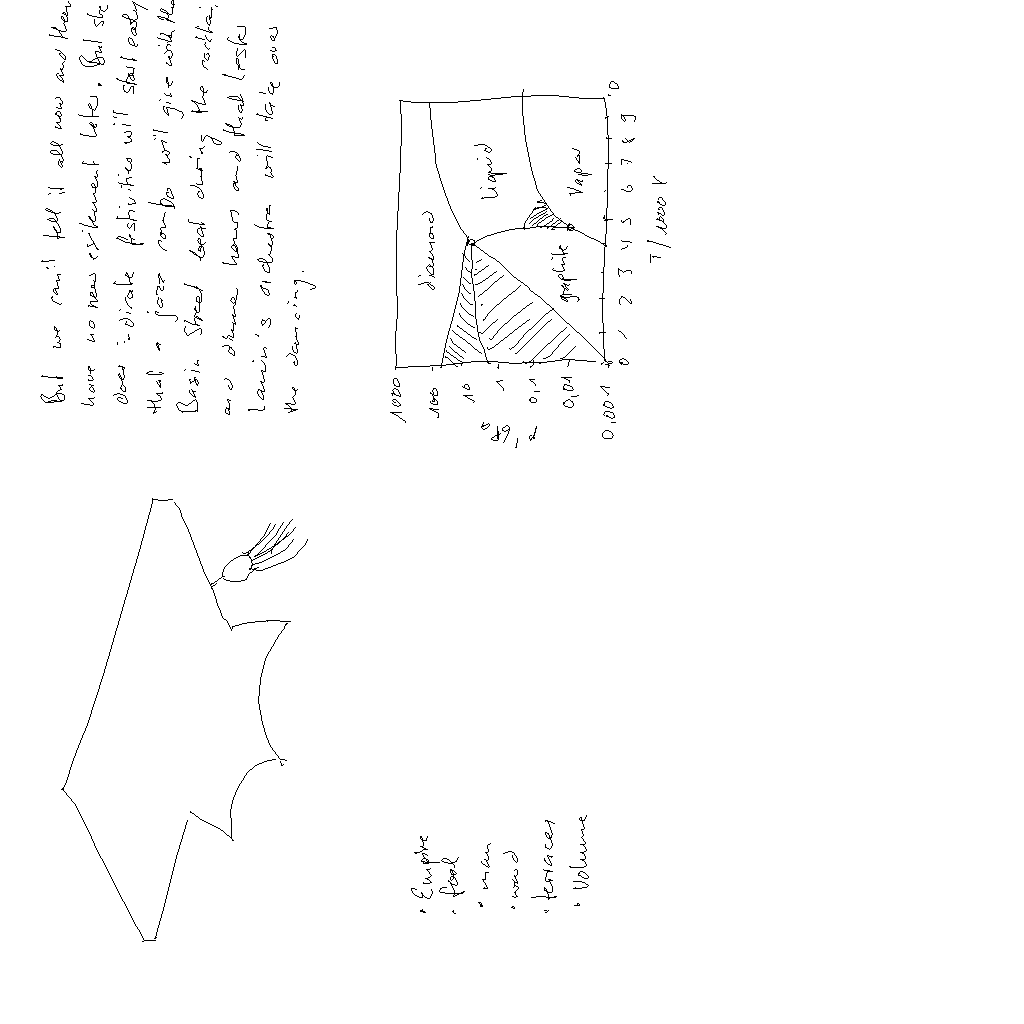 But we can't tell it all now and then
have no new exitement later. But she
does indicate festivities will start early
that a jazz combo will give with the
Basin Street beat during the cocktai
and dinner hours and that Lester
Lanin's orchestra will take over
the dancing.
1000
100
10
1
0,1
0,01
0,001
diamond
liquid
Vapor
graphite
0 1 2 3 4 5 6 7 8 9 10
T/1000 K
• Empire
• fool
• man
• word
• terraces
• Volume